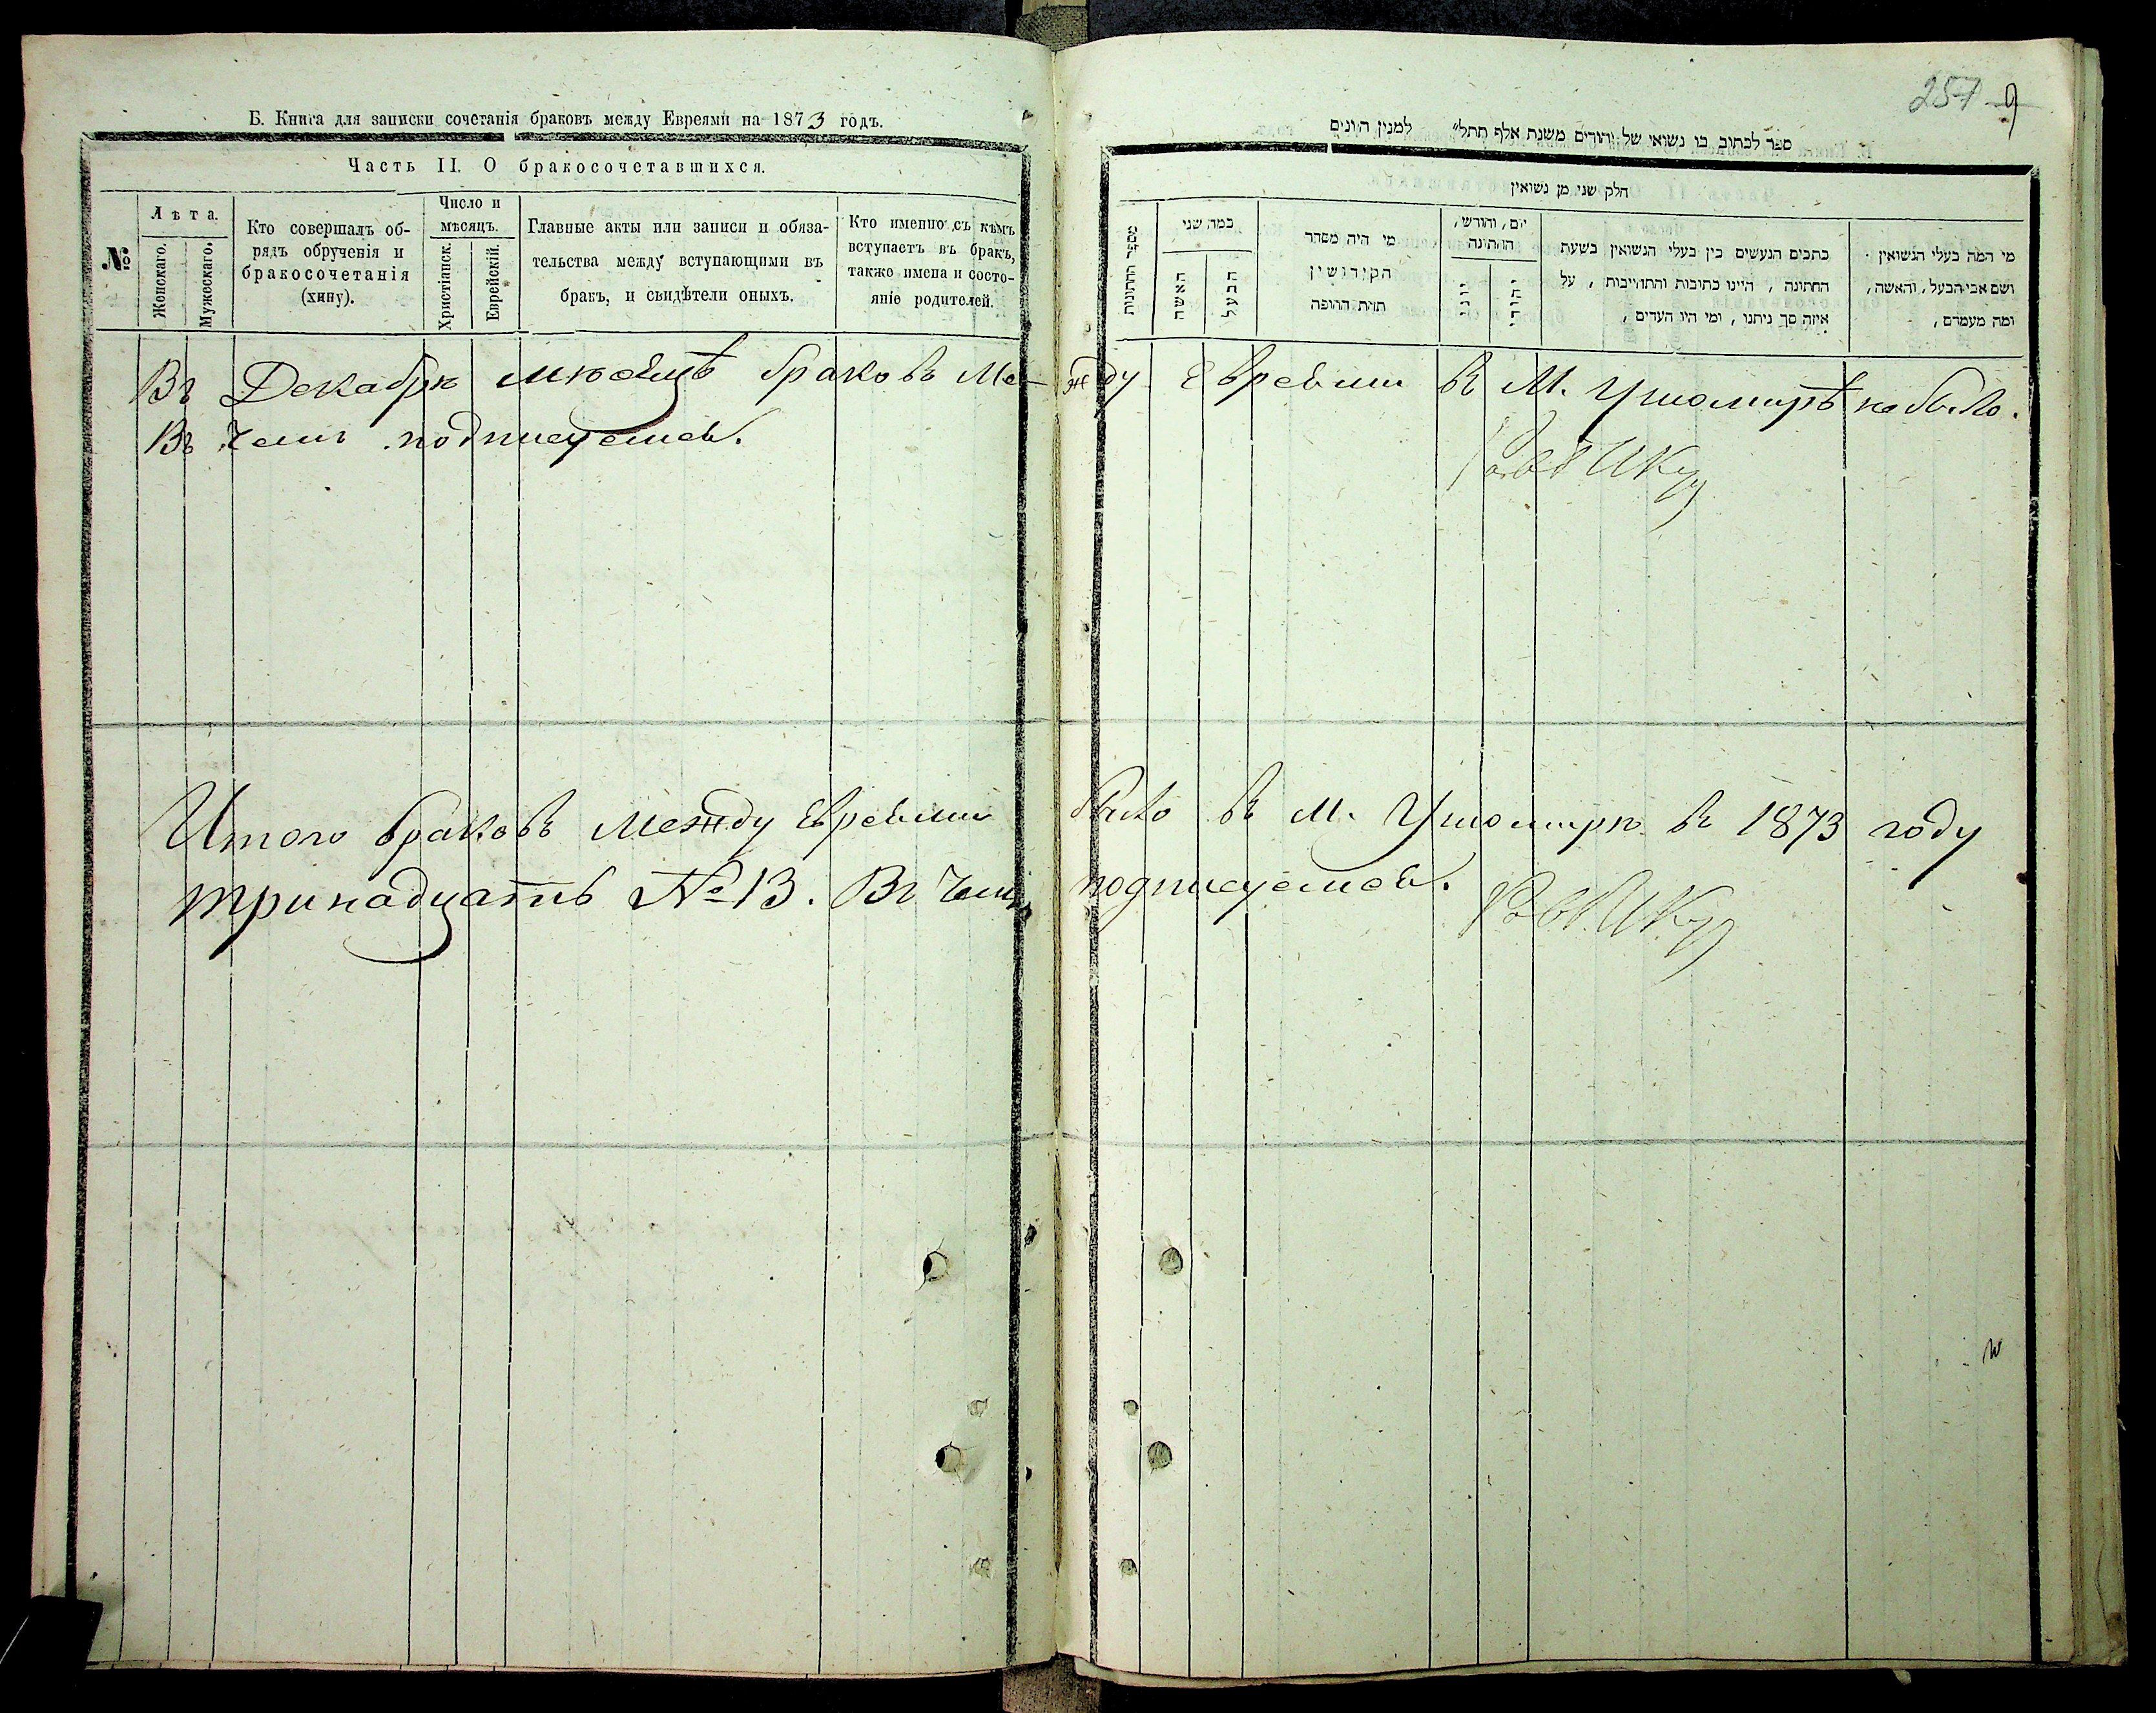 Б. Книга для записки сочетанія браковъ между Евреями на 1873 годъ.
Часть II. О бракосочетавшихся.
№
Лѣта.
Женскаго.
Мужескаго.
Кто совершалъ об-
рядъ обрученія и
бракосочетанія
(хипу).
Число и
мѣсяцъ.
Христіанск.
Еврейскій.
Главные акты или записи и обяза-
тельства между вступающими въ
бракъ, и свидѣтели оныхъ.
Кто именно съ кѣмъ
вступаетъ въ бракъ,
также имена и состо-
яніе родителей.
257
9
ספר לכתוב בו נשואי של יהודים משנת אלף תתל״ למנין היונים
חלק שני מן נשואין
מי המה בעלי הנשואין
ושם אבי הבעל, והאשה,
ומה מעמדם,
כתבים הנעשים בין בעלי הנשואין בשעת
החתונה, היינו כתובות והתחייבות, על
איזה סך ניתנו, ומי היו העדים,
יום, וחודש,
החתונה
יהודי
יוני
מי היה מסדר
הקידושין
תחת החופה
כמה שני
הבעל
האשה
מספר החתונות
Въ Декабрѣ мѣсяцѣ браковъ Ме-жду Евреями въ М. Ушомирѣ не было.
Въ чемъ подписуемся.
Рабб. И К
Итого браковъ между Евреями было въ м. Ушомирѣ въ 1873 году
тринадцать № 13. Въ чемъ подписуемся.
Рабб. И К